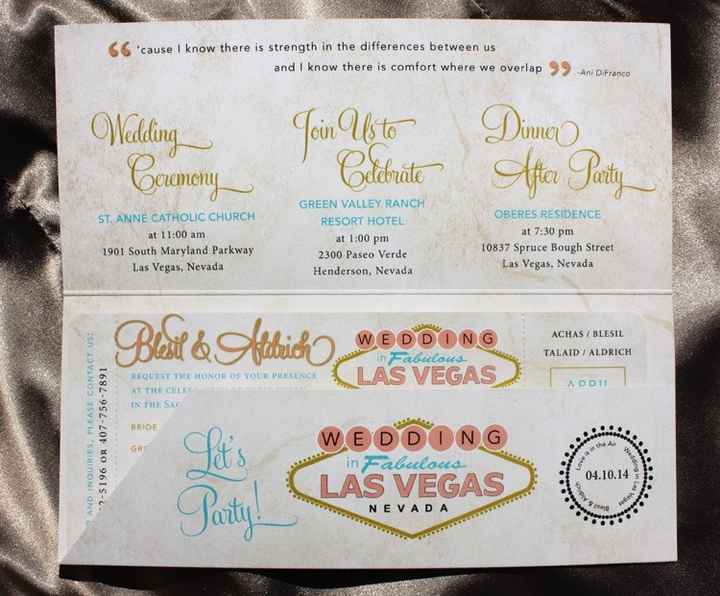 “ 'cause I know there is strength in the differences between us
and I know there is comfort where we overlap ” -Ani DiFranco
Wedding
Ceremony
ST. ANNE CATHOLIC CHURCH
at 11:00 am
1901 South Maryland Parkway
Las Vegas, Nevada
Join Us to
Celebrate
GREEN VALLEY RANCH
RESORT HOTEL
at 1:00 pm
2300 Paseo Verde
Henderson, Nevada
Dinner
After Party
OBERES RESIDENCE
at 7:30 pm
10837 Spruce Bough Street
Las Vegas, Nevada
AND INQUIRIES, PLEASE CONTACT US:
2-5196 OR 407-756-7891
Blesil & Aldrich
REQUEST THE HONOR OF YOUR PRESENCE
AT THE
IN THE
BRIDE
WEDDING
in Fabulous
LAS VEGAS
ACHAS / BLESIL
TALAID / ALDRICH
APRIL
Let's
Party!
WEDDING
in Fabulous
LAS VEGAS
NEVADA
Love is in the Air
Wedding in Las Vegas
Blesil & Aldrich
04.10.14